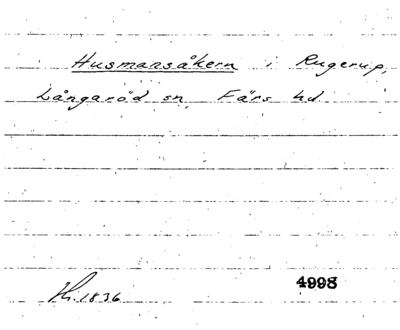 Husmansåkern i Rugerup,
Långaröd sn, Färs hd
4998
1836